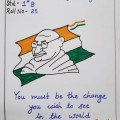 Std - 1st B
Roll No - 25
You must be the change
you wish to see
in the world